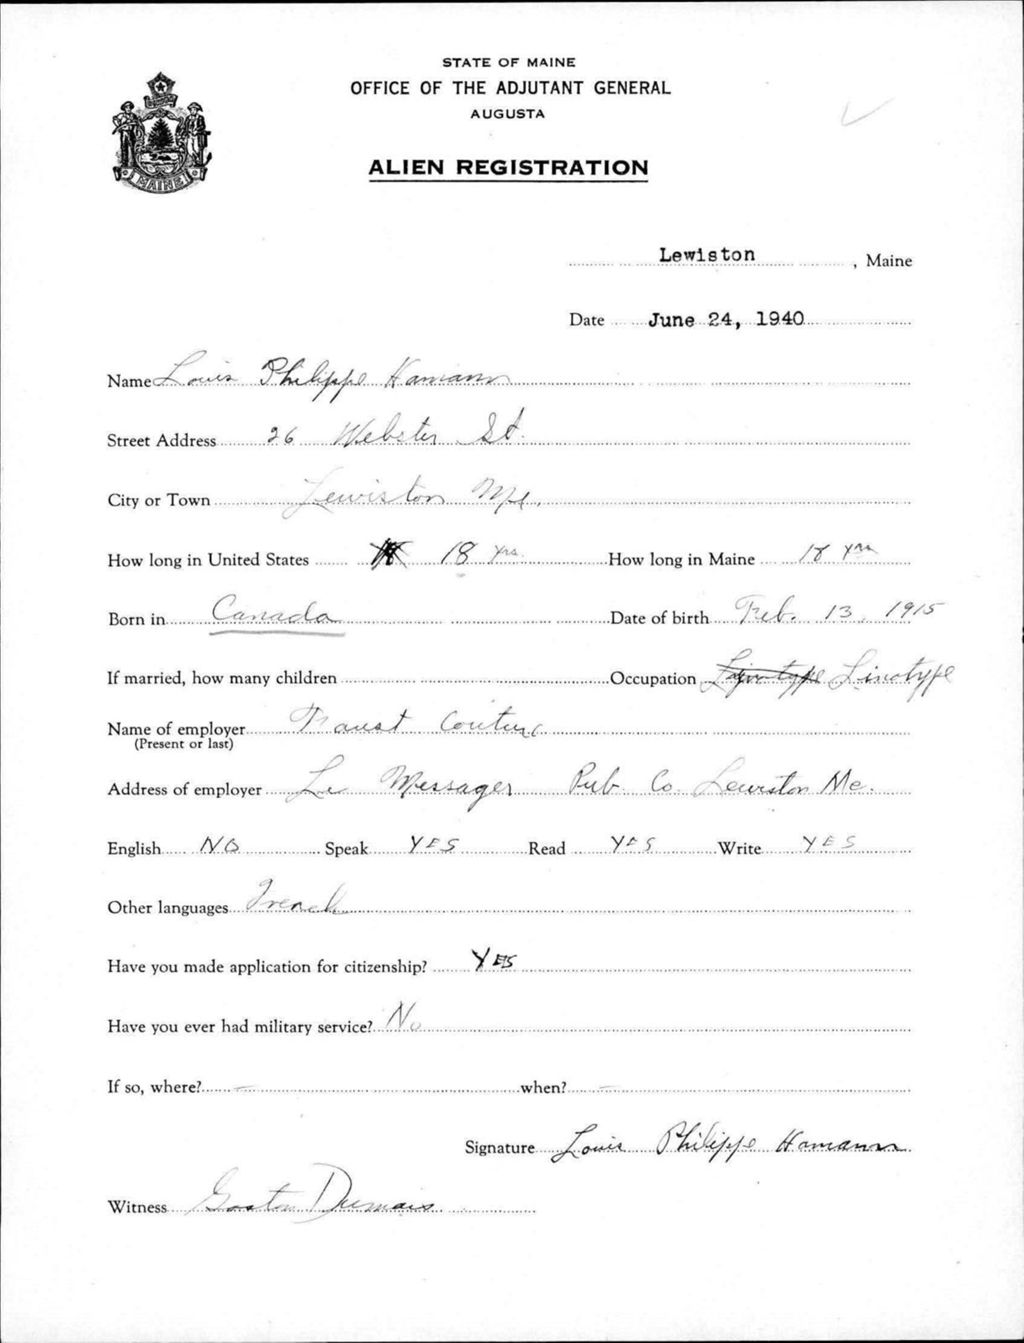 STATE OF MAINE
OFFICE OF THE ADJUTANT GENERAL
AUGUSTA
ALIEN REGISTRATION
MAINE
Lewiston, Maine
Date June 24, 1940
Name Louis Philippe Hamann
Street Address 26 Webster St.
City or Town Lewiston Me.
How long in United States 18 yrs. How long in Maine 18 yrs
Born in Canada Date of birth Feb. 13, 1915
If married, how many children Occupation Linotype
Name of employer Faust Couture
(Present or last)
Address of employer Le Messager Pub. Co. Lewiston Me.
English NO Speak YES Read YES Write YES
Other languages French
Have you made application for citizenship? YES
Have you ever had military service? No
If so, where? — when? —
Signature Louis Philippe Hamann
Witness Gaston Dumais